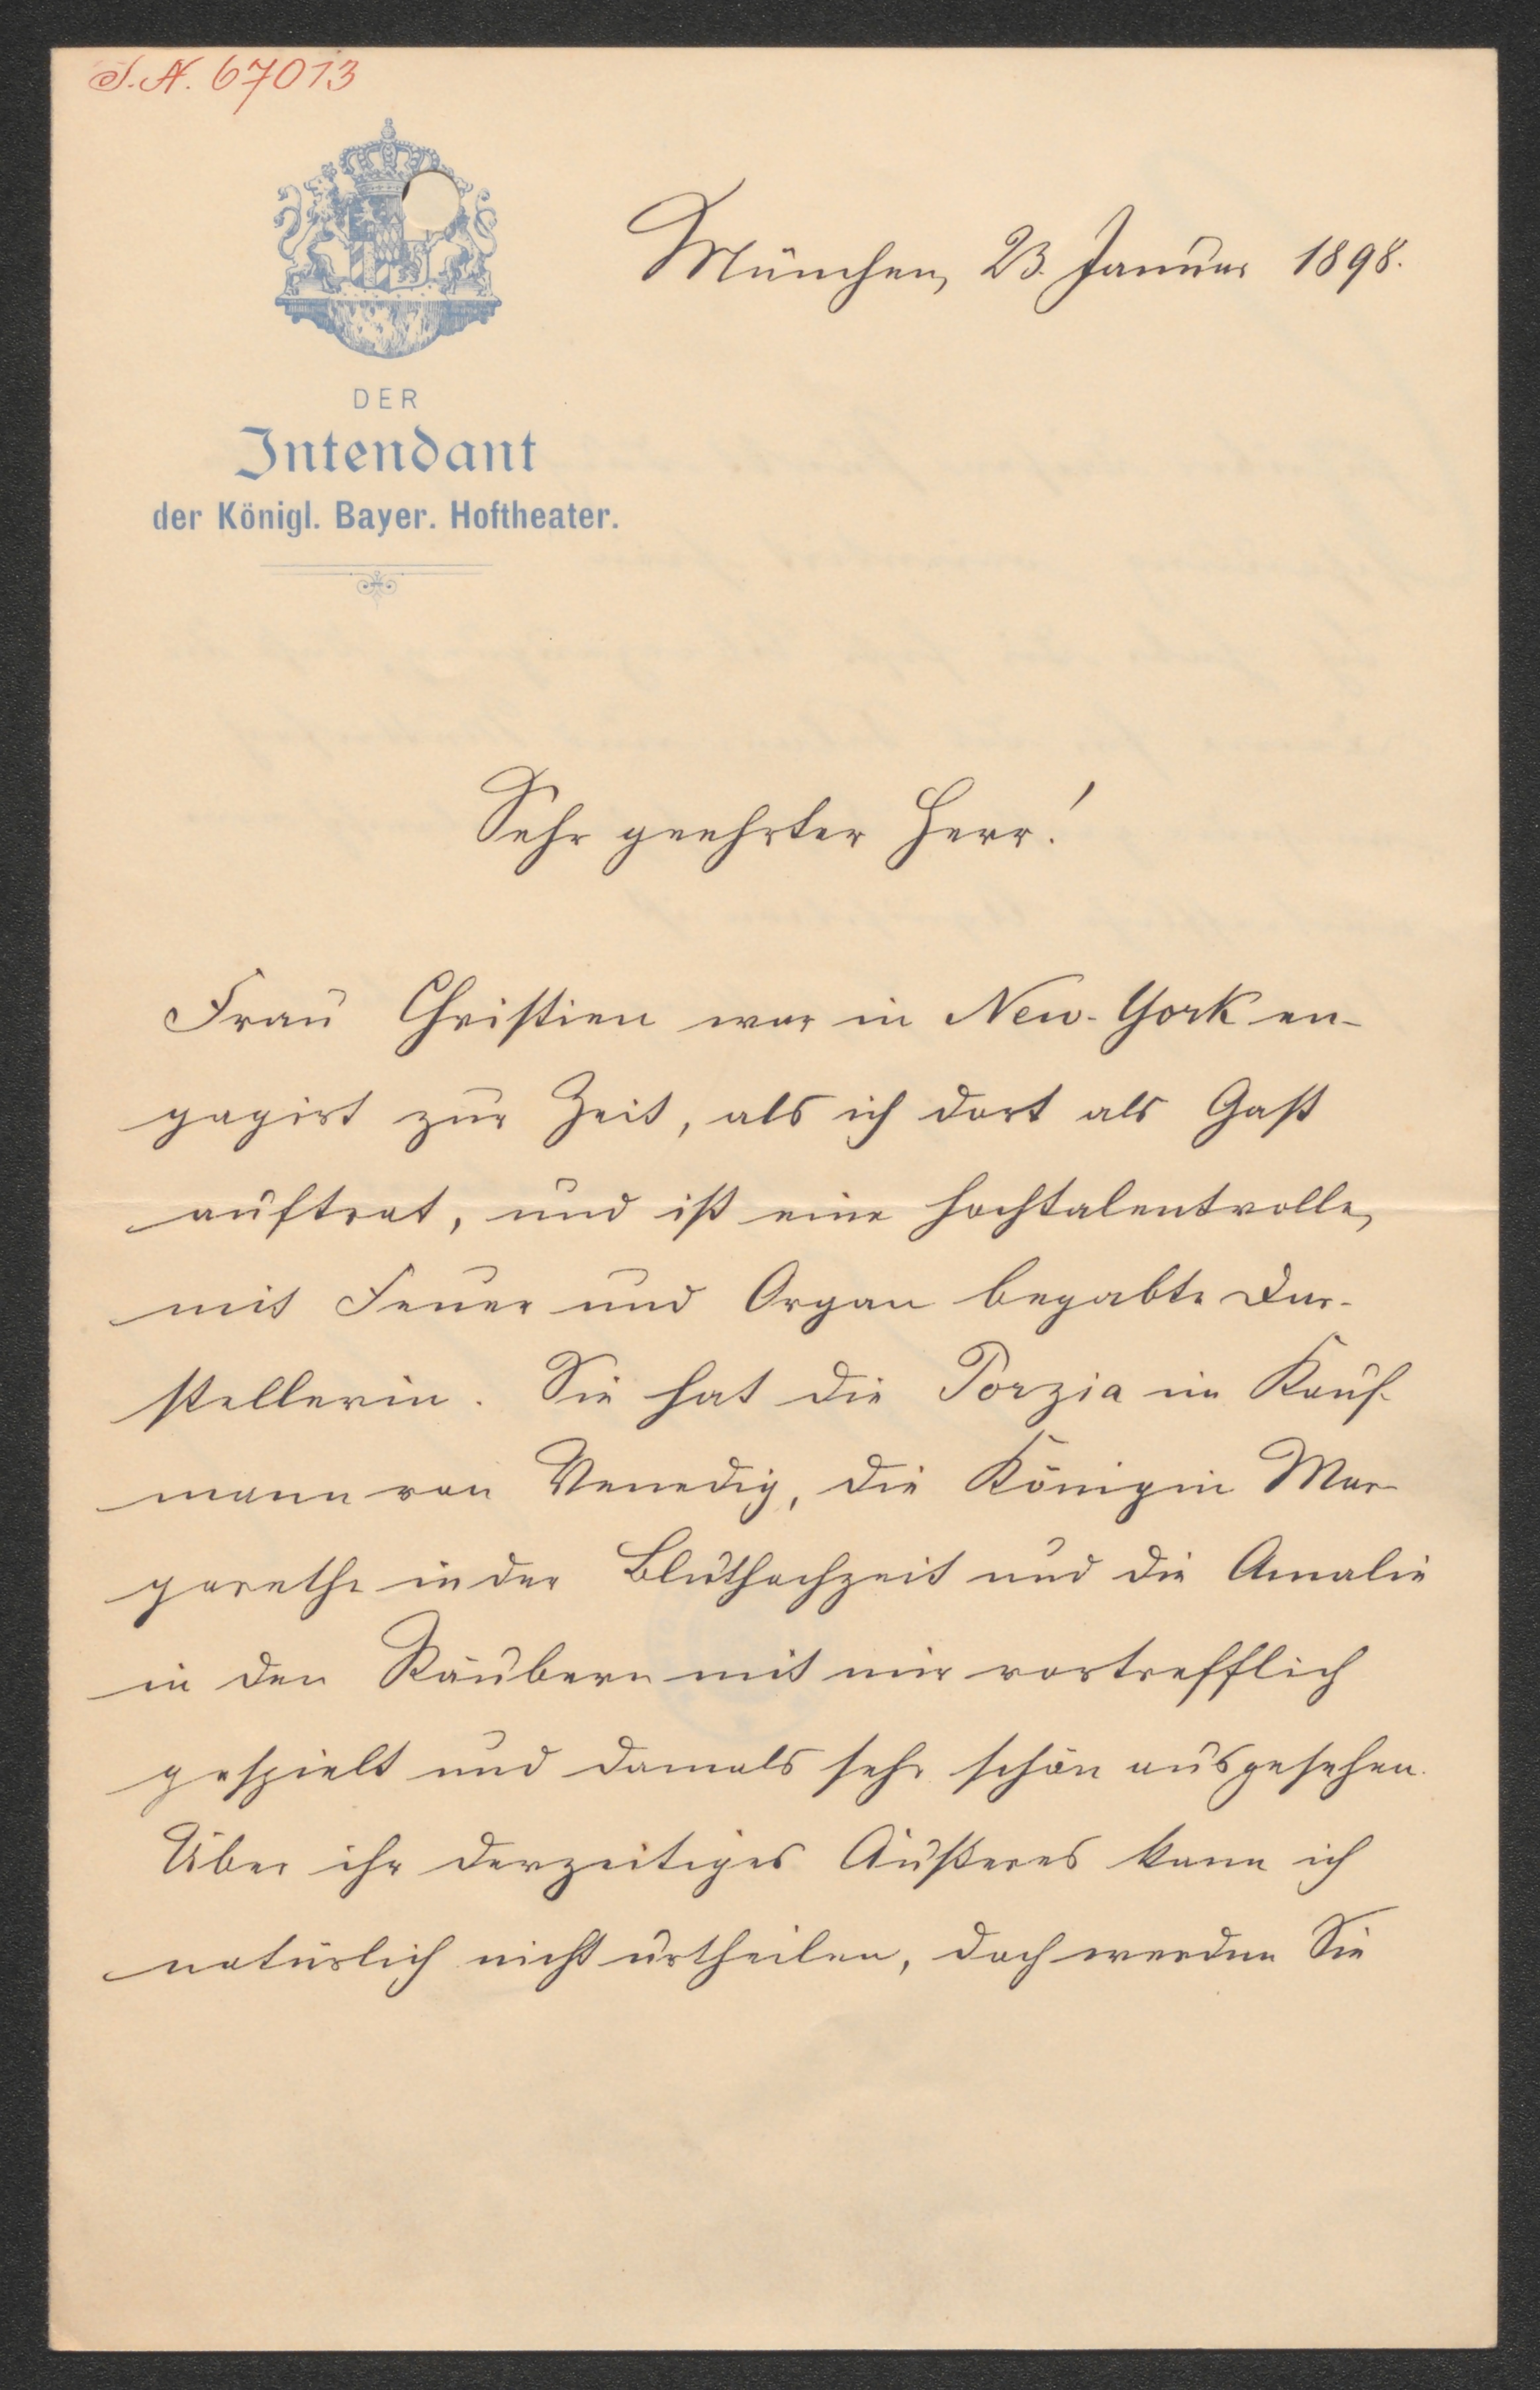 J.N. 67013
München, 23. Januar 1898.
DER
Intendant
der Königl. Bayer. Hoftheater.
Sehr geehrter Herr!
Frau Christien war in New-York en-
gagirt zur Zeit, als ich dort als Gast
auftrat, und ist eine hochtalentvolle,
mit Feuer und Organ begabte Dar-
stellerin. Sie hat die Porzia im Kauf-
mann von Venedig, die Königin Mar-
garethe in der Bluthochzeit und die Amalie
in den Räubern mit mir vortrefflich
gespielt und damals sehr schön ausgesehen.
Über ihr derzeitiges Äußeres kann ich
natürlich nicht urtheilen, doch werden Sie